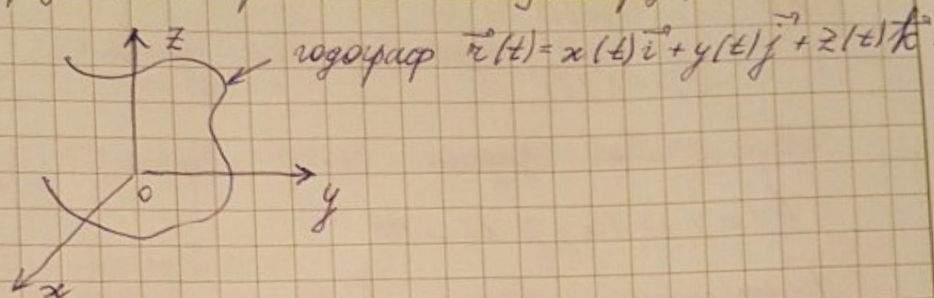 z
годограф r⃗(t) = x(t)i⃗ + y(t)j⃗ + z(t)k⃗
0
y
x